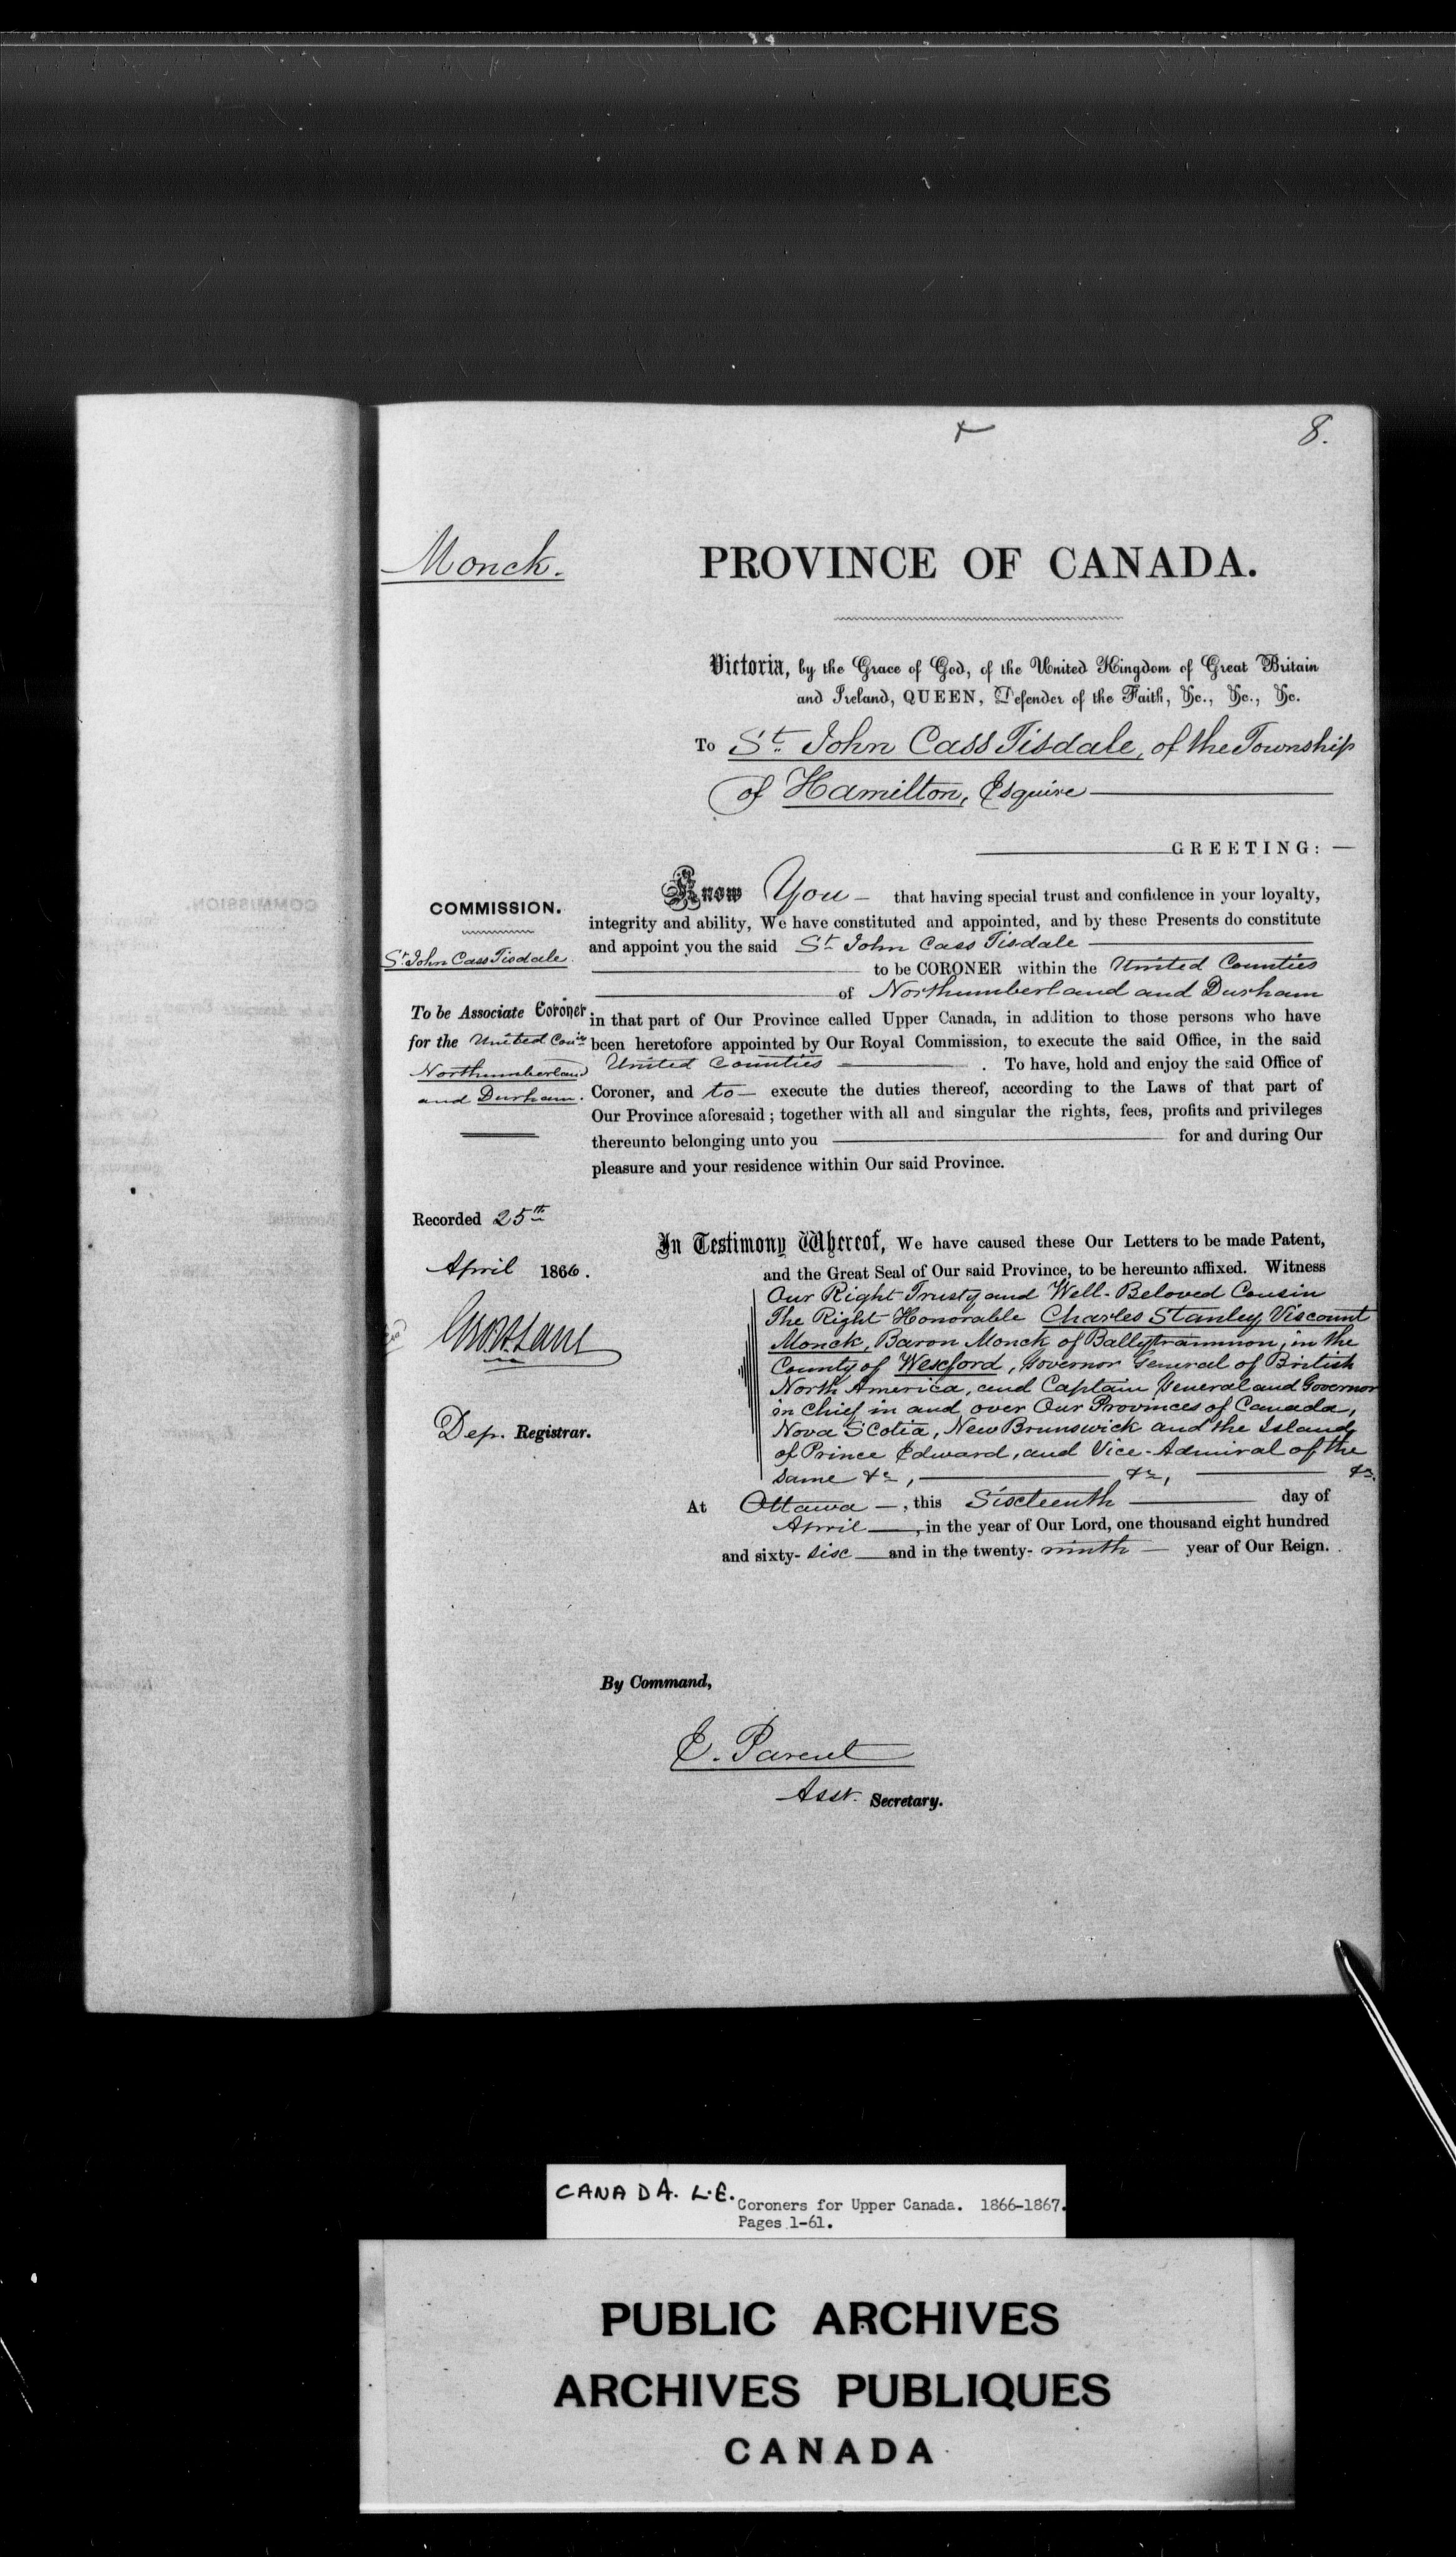 8.
Monck.
PROVINCE OF CANADA.
Victoria, by the Grace of God, of the United Kingdom of Great Britain
and Ireland, QUEEN, Defender of the Faith, &c., &c., &c.
To St. John Cass Tisdale, of the Township
of Hamilton, Esquire
GREETING:
COMMISSION.
St. John Cass Tisdale.
To be Associate Coroner
for the United Coun
Northumberland
and Durham.
Know You — that having special trust and confidence in your loyalty,
integrity and ability, We have constituted and appointed, and by these Presents do constitute
and appoint you the said St. John Cass Tisdale
to be CORONER within the United Counties
of Northumberland and Durham
in that part of Our Province called Upper Canada, in addition to those persons who have
been heretofore appointed by Our Royal Commission, to execute the said Office, in the said
United Counties — . To have, hold and enjoy the said Office of
Coroner, and to — execute the duties thereof, according to the Laws of that part of
Our Province aforesaid; together with all and singular the rights, fees, profits and privileges
thereunto belonging unto you — for and during Our
pleasure and your residence within Our said Province.
Recorded 25th
April 1866.
Dep. Registrar.
In Testimony Whereof, We have caused these Our Letters to be made Patent,
and the Great Seal of Our said Province, to be hereunto affixed. Witness
Our Right Trusty and Well-Beloved Cousin
The Right Honorable Charles Stanley, Viscount
Monck, Baron Monck of Ballytrammon, in the
County of Wexford, Governor General of British
North America, and Captain General and Governor
in Chief in and over Our Provinces of Canada,
Nova Scotia, New Brunswick and the Island
of Prince Edward, and Vice-Admiral of the
same &c, — &c, — &c.
At Ottawa —, this Sixteenth — day of
April —, in the year of Our Lord, one thousand eight hundred
and sixty-six — and in the twenty-ninth — year of Our Reign.
By Command,
E. Parent
Asst. Secretary.
CANADA. L.E. Coroners for Upper Canada. 1866-1867.
Pages 1-61.
PUBLIC ARCHIVES
ARCHIVES PUBLIQUES
CANADA